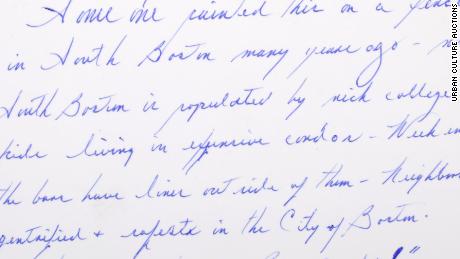 Someone painted this on a fence
in South Boston many years ago -
South Boston is populated by rich college
kids living in expensive condos - Weeken
the bars have lines outside of them - Neighbor
gentrified + safest in the City of Boston.
"
URBAN CULTURE AUCTIONS